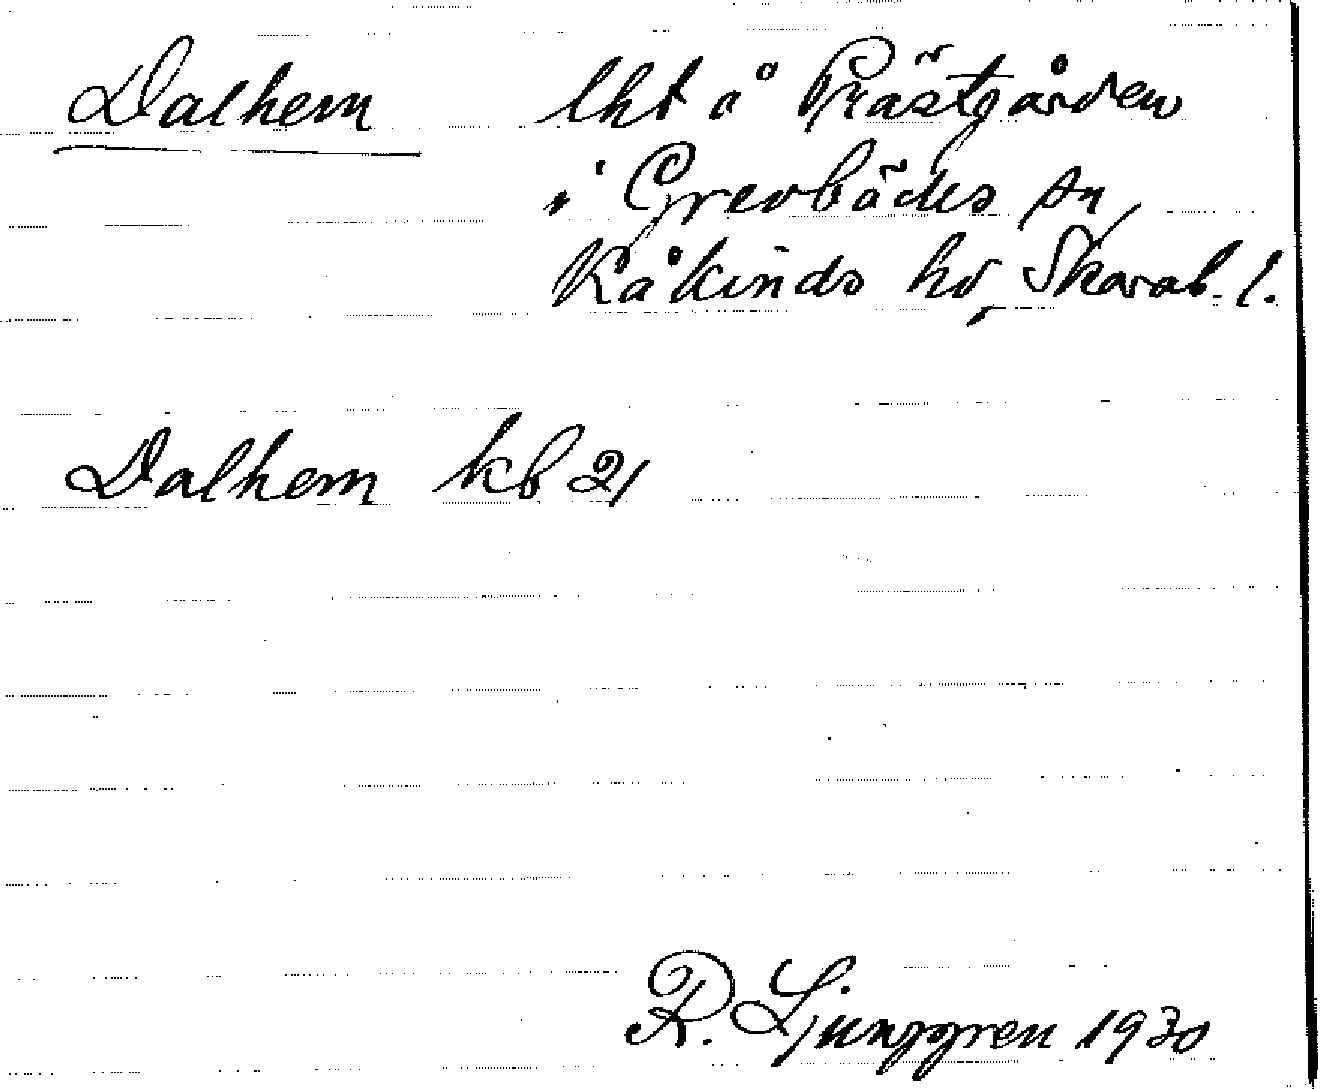 Dalhem lht å Prästgården
i Grevbäcks sn,
Kåkinds hd, Skarab. l.
Dalhem kb 21
R. Ljunggren 1930